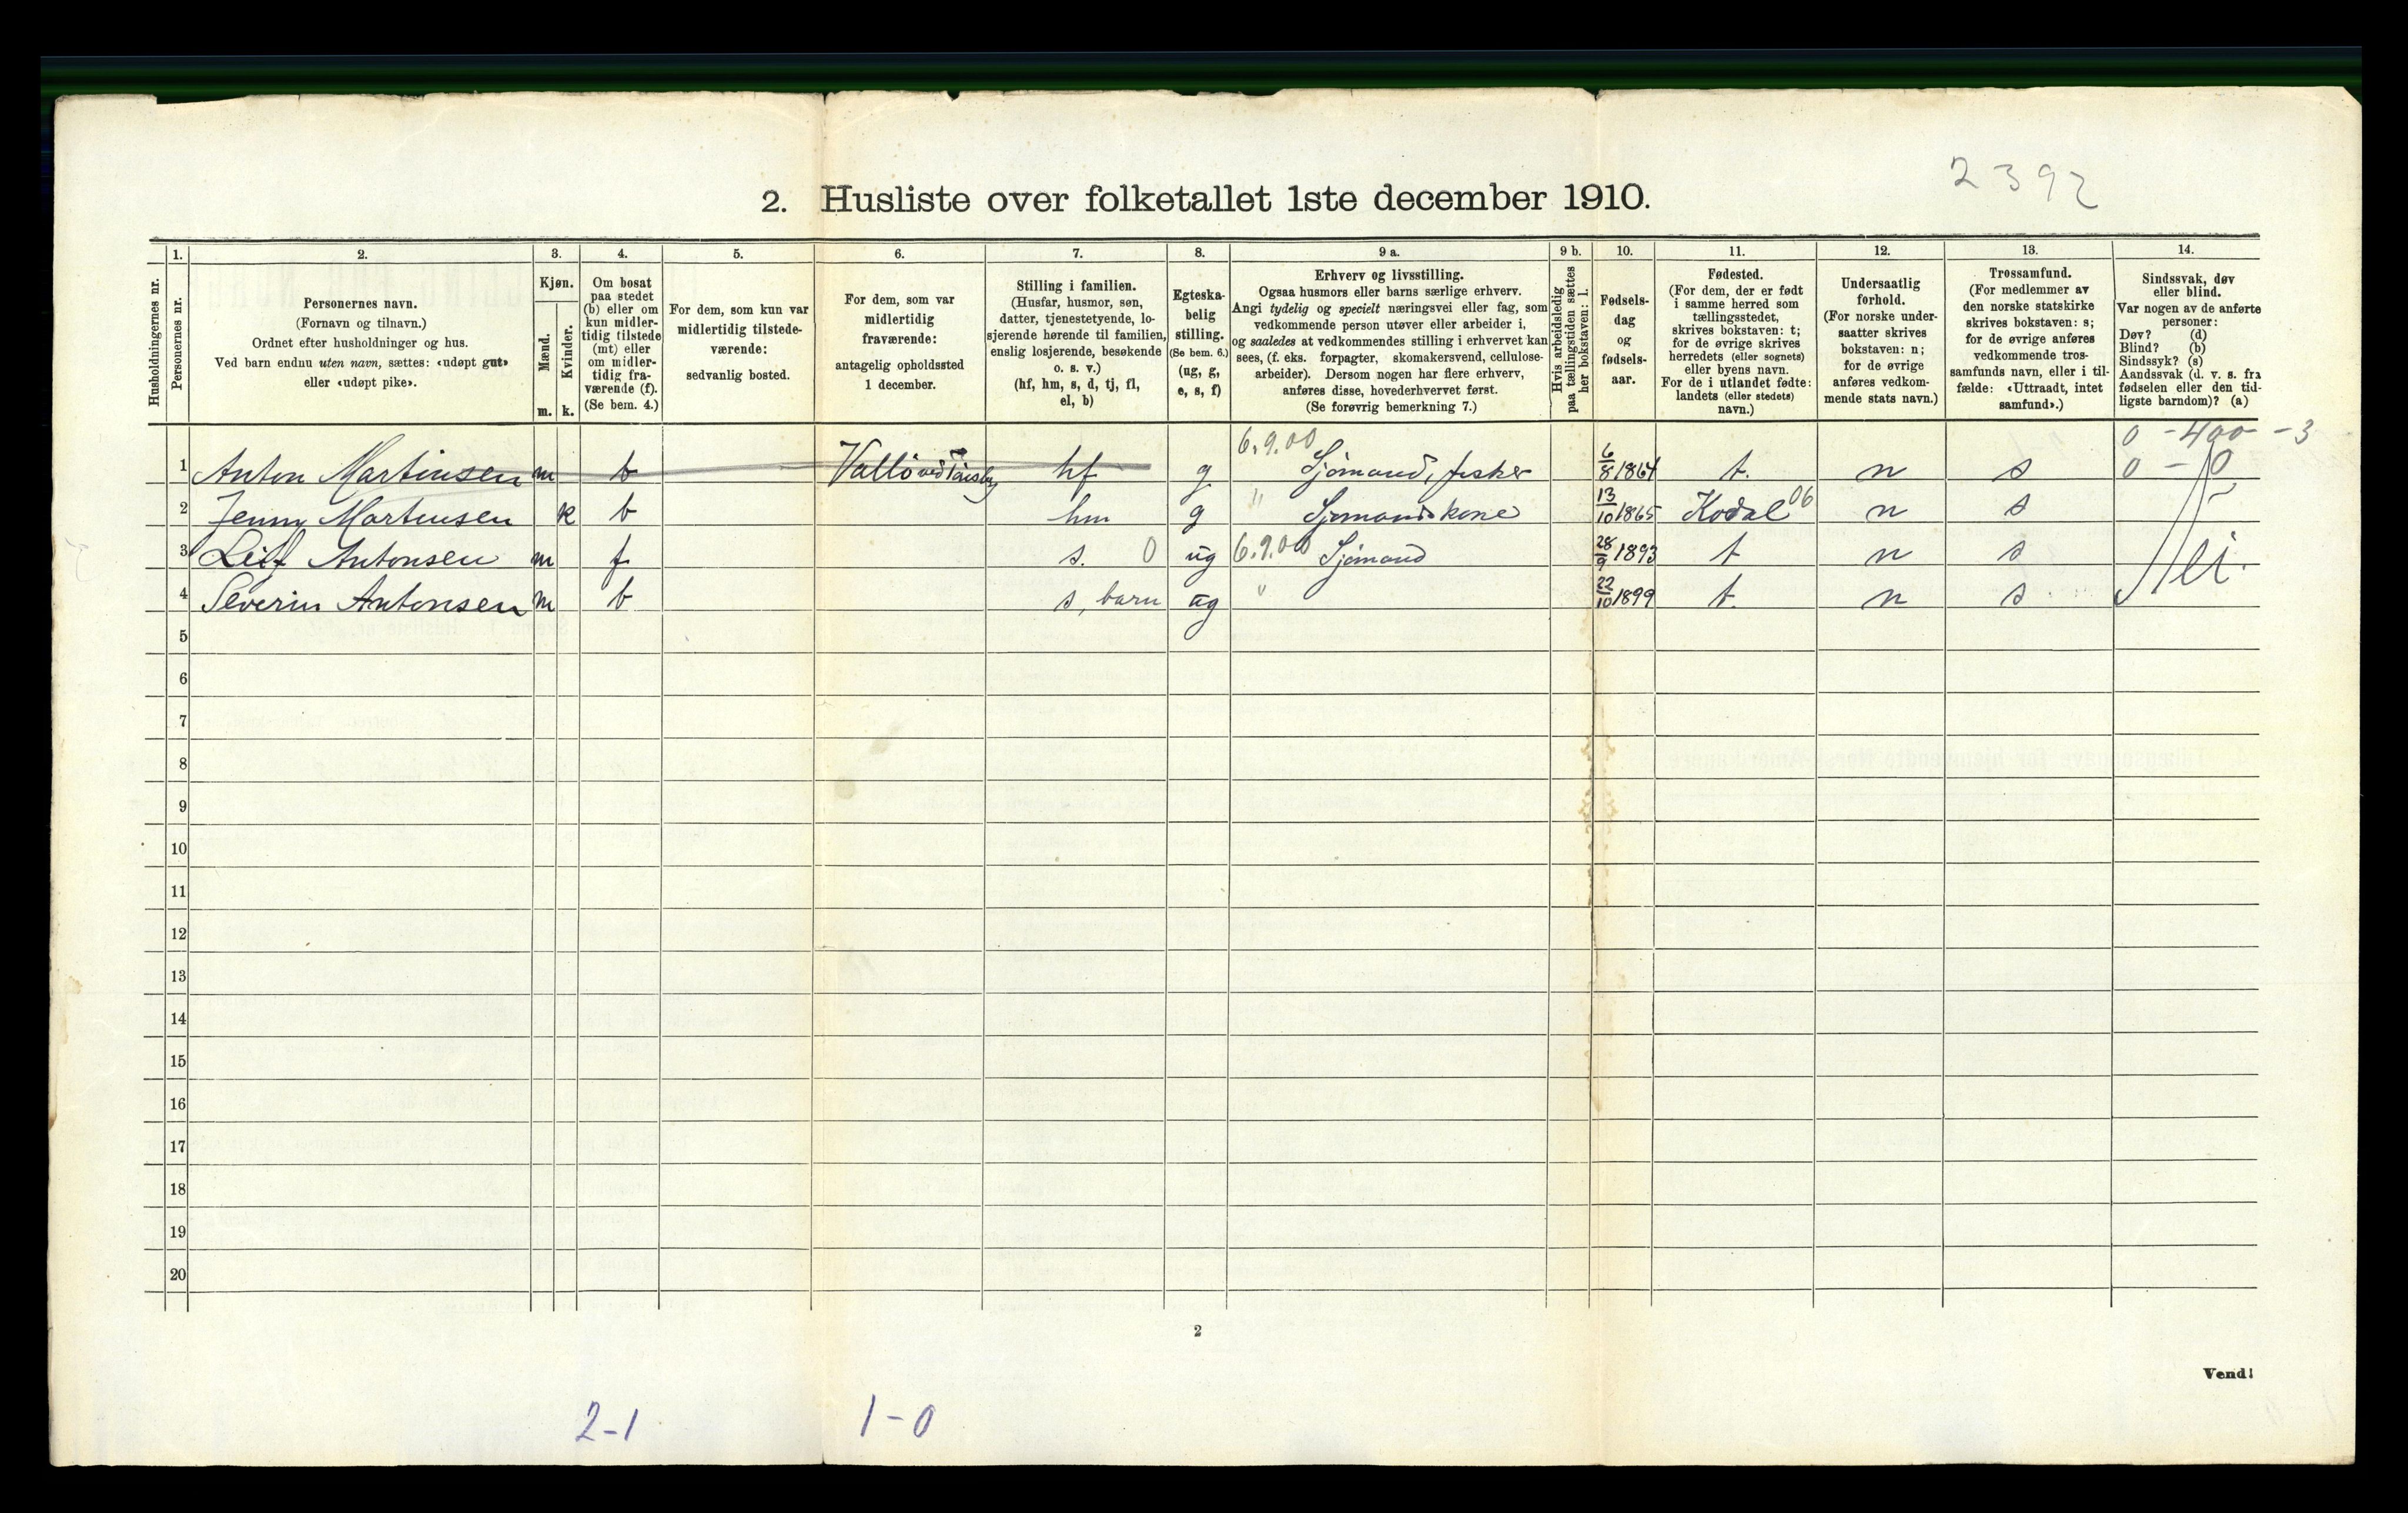 2392
2. Husliste over folketallet 1ste december 1910.
Husholdningernes nr.
1.
Personernes nr.
2.
Personernes navn.
(Fornavn og tilnavn.)
Ordnet efter husholdninger og hus.
Ved barn endnu uten navn, sættes: «udøpt gut»
eller «udøpt pike».
3.
Kjøn.
Mænd.
Kvinder.
m. k.
4.
Om bosat
paa stedet
(b) eller om
kun midler-
tidig tilstede
(mt) eller
om midler-
tidig fra-
værende (f).
(Se bem. 4.)
5.
For dem, som kun var
midlertidig tilstede-
værende:
sedvanlig bosted.
6.
For dem, som var
midlertidig
fraværende:
antagelig opholdssted
1 december.
7.
Stilling i familien.
(Husfar, husmor, søn,
datter, tjenestetyende, lo-
sjerende hørende til familien,
enslig losjerende, besøkende
o. s. v.)
(hf, hm, s, d, tj, fl,
el, b)
8.
Egteska-
belig
stilling.
(Se bem. 6.)
(ug, g,
e, s, f)
9 a.
Erhverv og livsstilling.
Ogsaa husmors eller barns særlige erhverv.
Angi tydelig og specielt næringsvei eller fag, som
vedkommende person utøver eller arbeider i,
og saaledes at vedkommendes stilling i erhvervet kan
sees, (f. eks. forpagter, skomakersvend, cellulose-
arbeider). Dersom nogen har flere erhverv,
anføres disse, hovederhvervet først.
(Se forøvrig bemerkning 7.)
9 b.
Hvis arbeidsledig
paa tællingstiden sættes
her bokstaven: l.
10.
Fødsels-
dag
og
fødsels-
aar.
11.
Fødested.
(For dem, der er født
i samme herred som
tællingsstedet,
skrives bokstaven: t;
for de øvrige skrives
herredets (eller sognets)
eller byens navn.
For de i utlandet fødte:
landets (eller stedets)
navn.)
12.
Undersaatlig
forhold.
(For norske under-
saatter skrives
bokstaven: n;
for de øvrige
anføres vedkom-
mende stats navn.)
13.
Trossamfund.
(For medlemmer av
den norske statskirke
skrives bokstaven: s;
for de øvrige anføres
vedkommende tros-
samfunds navn, eller i til-
fælde: «Uttraadt, intet
samfund».)
14.
Sindssvak, døv
eller blind.
Var nogen av de anførte
personer:
Døv? (d)
Blind? (b)
Sindssyk? (s)
Aandssvak (d. v. s. fra
fødselen eller den tid-
ligste barndom)? (a)
6.9.00 0 - 400 - 3
1 Anton Martinsen m b Vallö ved hf g Sjömand, fisker 6/8 1864 t. n s 0 - 0
2 Jenny Martinsen k b hm g " Sjømandskone 13/10 1865 Kodal 06 n s
3 Leif Antonsen m f s. 0 ug 6.9.00 Sjömand 28/9 1893 t n s
4 Severin Antonsen m b s, barn ug " 22/10 1899 t. n s
5
6
7
8
9
10
11
12
13
14
15
16
17
18
19
20
2
Vend!
2-1 1-0